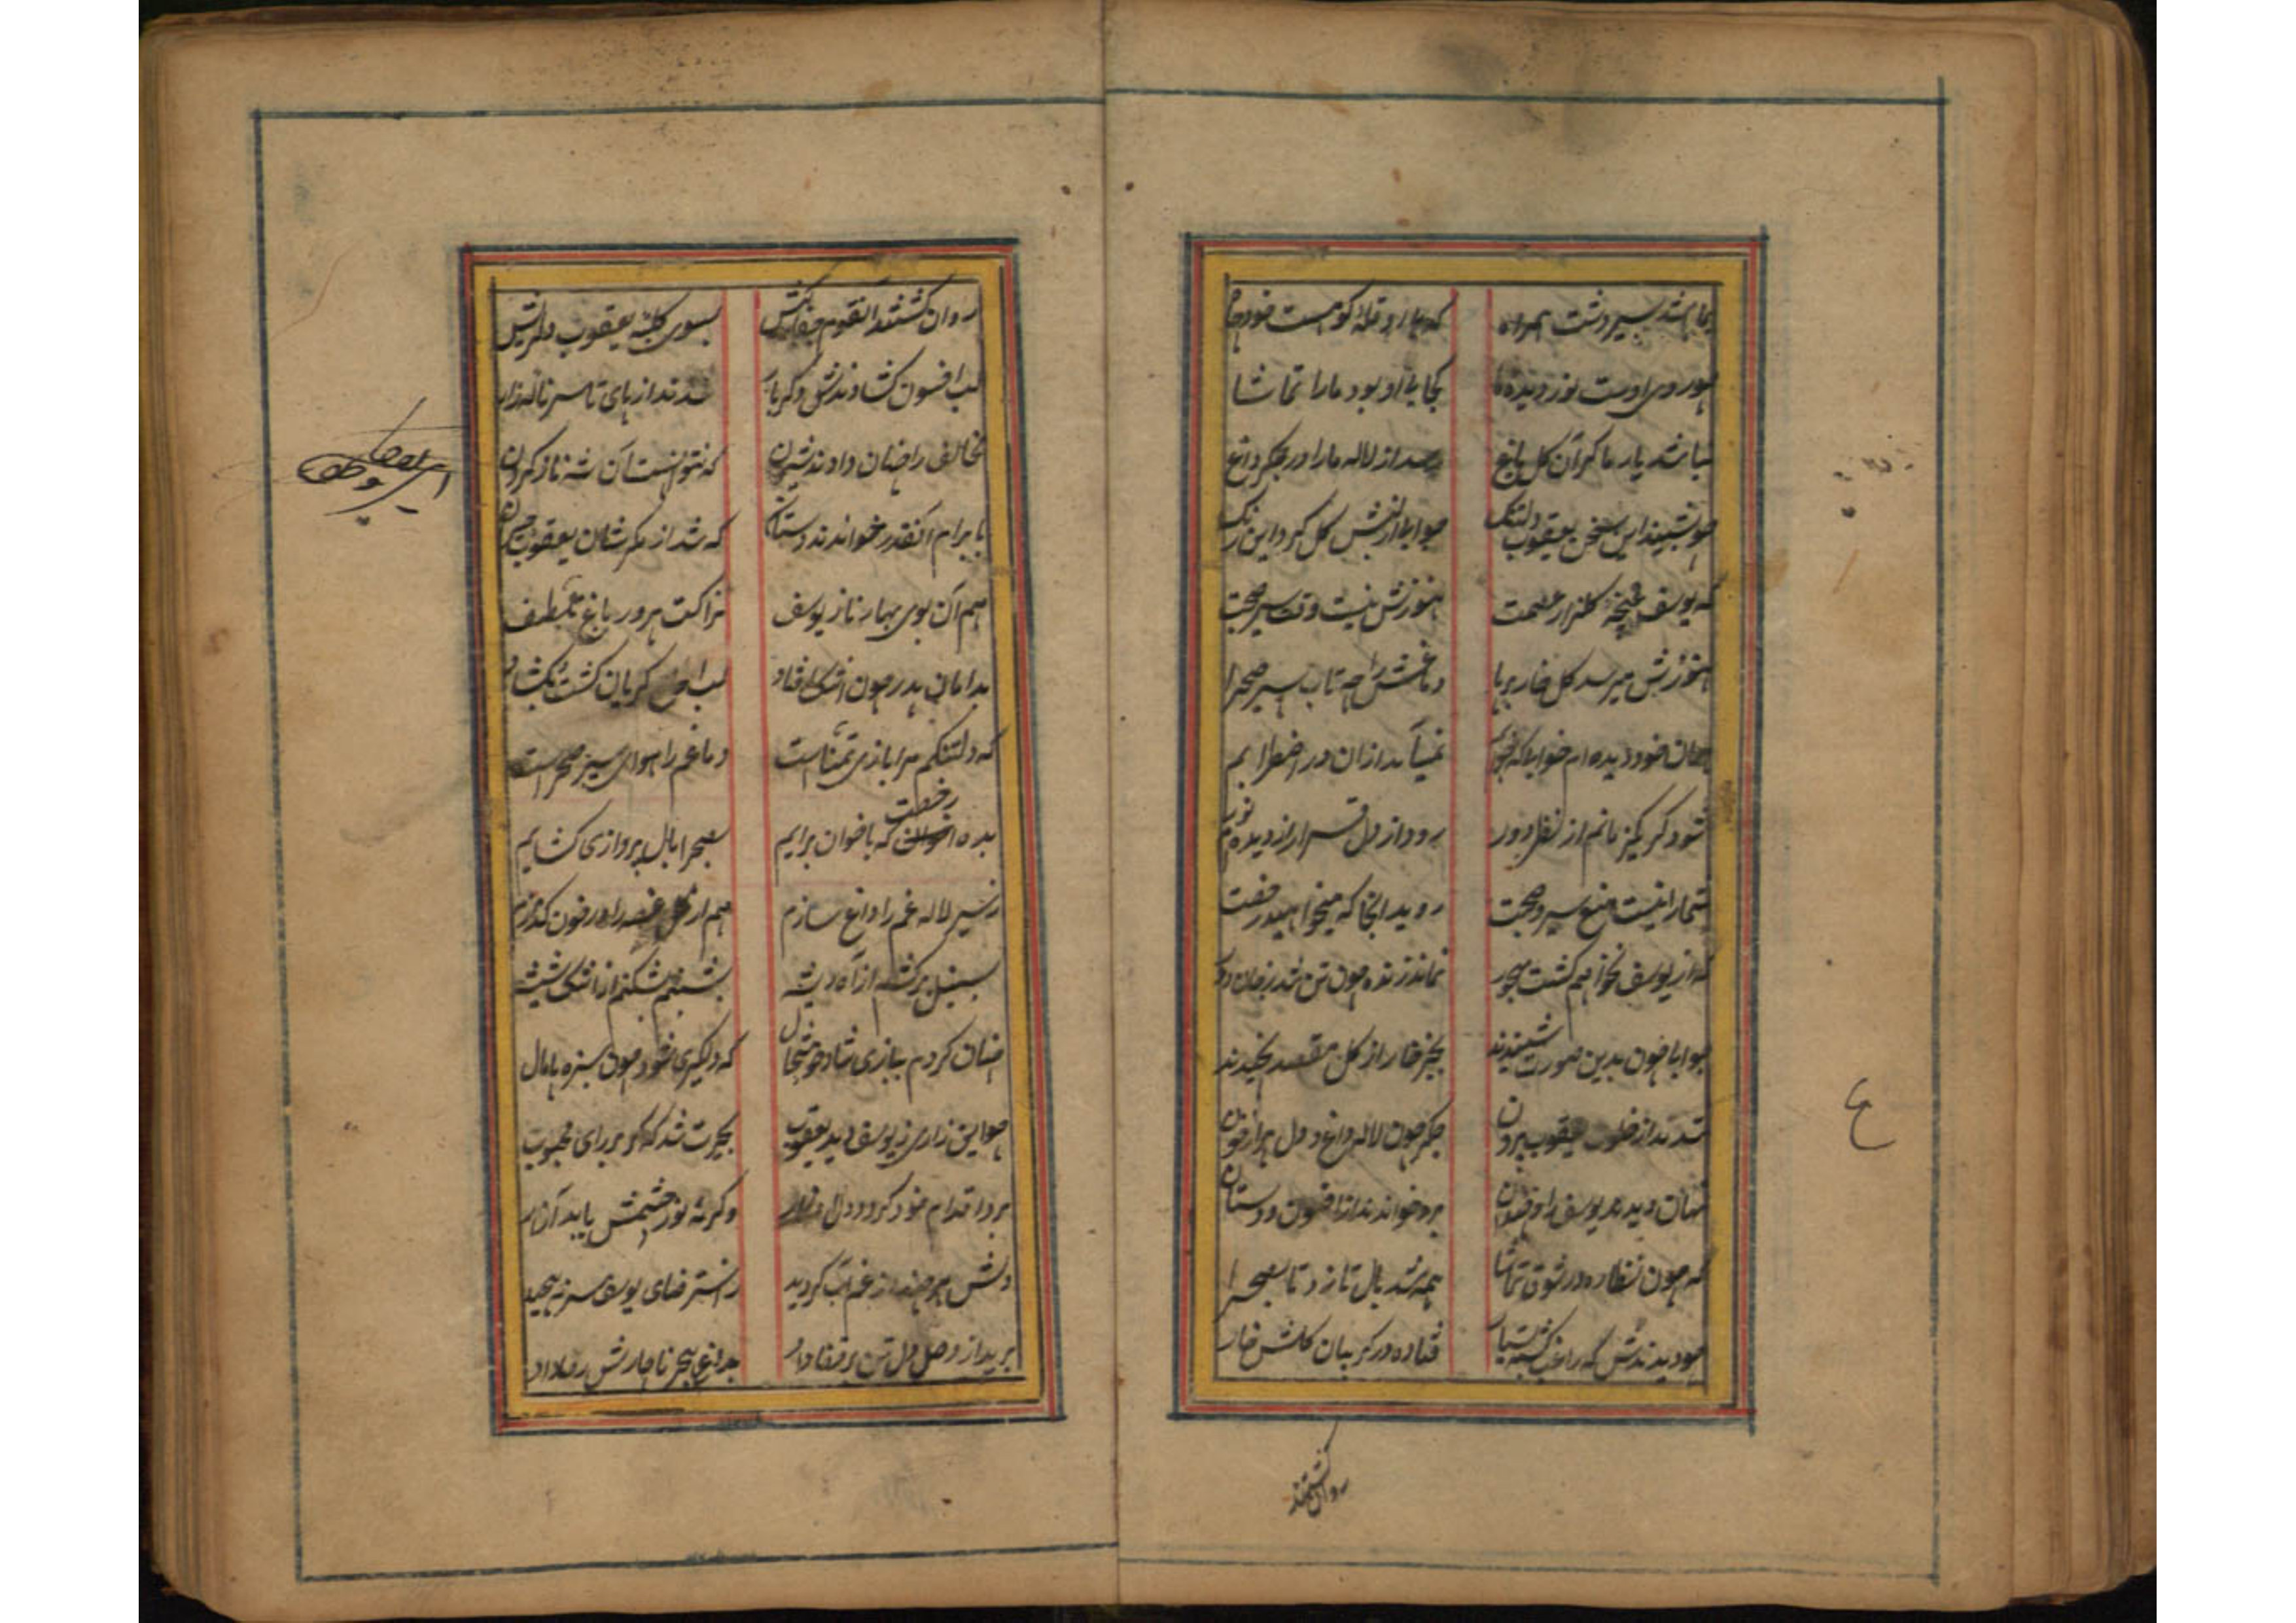 بما باشد بسیر دشت همراه که بی او
چو روی اوست نور دیده ما کجا بی او بود ما را تماشا
نباشد یار ما گر آن گل باغ رسد از لاله ما را در جگر داغ
چو بشنید این سخن یعقوب دلتنگ جوابا گل کرد این رنگ
که یوسف غنچه گلزار عصمت هنوزش نیست وقت سیر صحبت
هنوزش میرسد گل خار بر پا دماغش را چه تاب سیر صحرا
خود دیده ام خوابا که نمی‌آید ازان در اضطرابم
شود گر یکزمانم از نظر دور رود از دل قرار از دیده ام نور
شما را نیست منع سیر و صحبت روید آنجا که میخواهید رخصت
که از یوسف نخواهم گشت مهجور نماند زنده چون تن شد ز جان دور
جوابا چون بدین صورت شنیدند بجز خار از گل مقصد نچیدند
شدند از خلوت یعقوب بیرون جگر چون لاله داغ و دل پر از خون
نهان دیدند یوسف را برو خواندند از افسون و دستان
که چون نظاره در شوق تماشا همه شد بال تا زد تا بصحرا
چو دیدندش که راغب گشت بسیار فتاده در گریبان گلش خار
روان گشتند
روان گشتند آنقوم جفاکیش بسوی کلبه یعقوب دلریش
لب افسون گشادندش دگربار شدند از پای تا سر ناله زار
مخالف را چنان دادند شیرین که نتوانست آن
بابرام آنقدر خواندند دستان که شد از مکرشان یعقوب
هم آن بوی بهار ناز یوسف نزاکت پرور باغ تلطف
بدامان پدر چون اشک افتاد لب گریان گشت بگشاد
که دلتنگم مرا بازی تمناست دماغم را هوای سیر صحراست
بده رخصت که با اخوان برآیم بصحرا بال پروازی گشایم
ز سیر لاله غم را داغ سازم هم از گل غصه را در خون گدازم
بسنبل برکشم از آه ریشه بشبنم بشکنم از اشک شیشه
چنان گردم ببازی شاد و خوشحال که دلگیری شود چون سبزه پامال
چو این زاری ز یوسف دید یعقوب بحیرت شد که گر بر رای محبوب
برد اقدام خود گردد دل افکار وگرنه نور چشمش یابد آزار
دلش هر چند از غم آب گردید ز استرضای یوسف سر نپیچید
برید از وصل دل تن بر قضا داد بداغ هجر ناچارش رضا داد